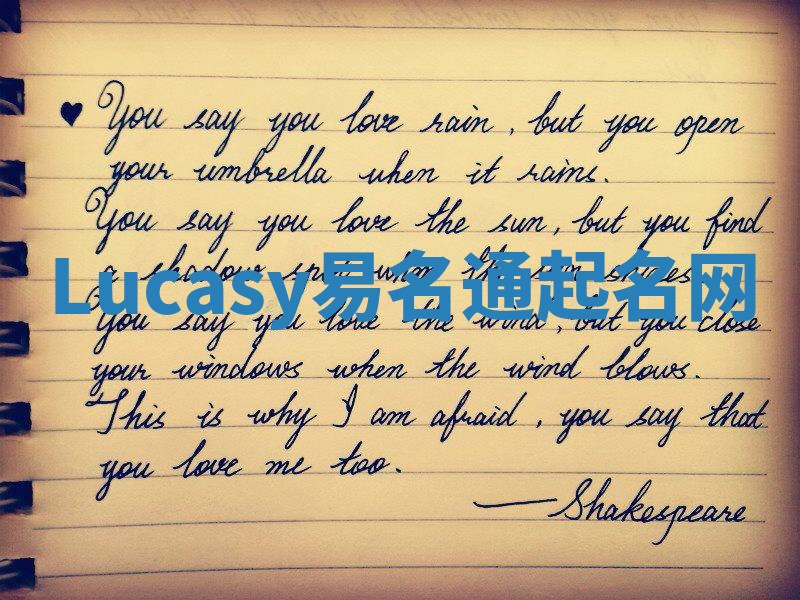 ♥ You say you love rain, but you open
your umbrella when it rains.
You say you love the sun, but you find
a shadow spot when the sun shines.
Lucasy易名通起名网
You say you love the wind, but you close
your windows when the wind blows.
This is why I am afraid, you say that
you love me too.
— Shakespeare